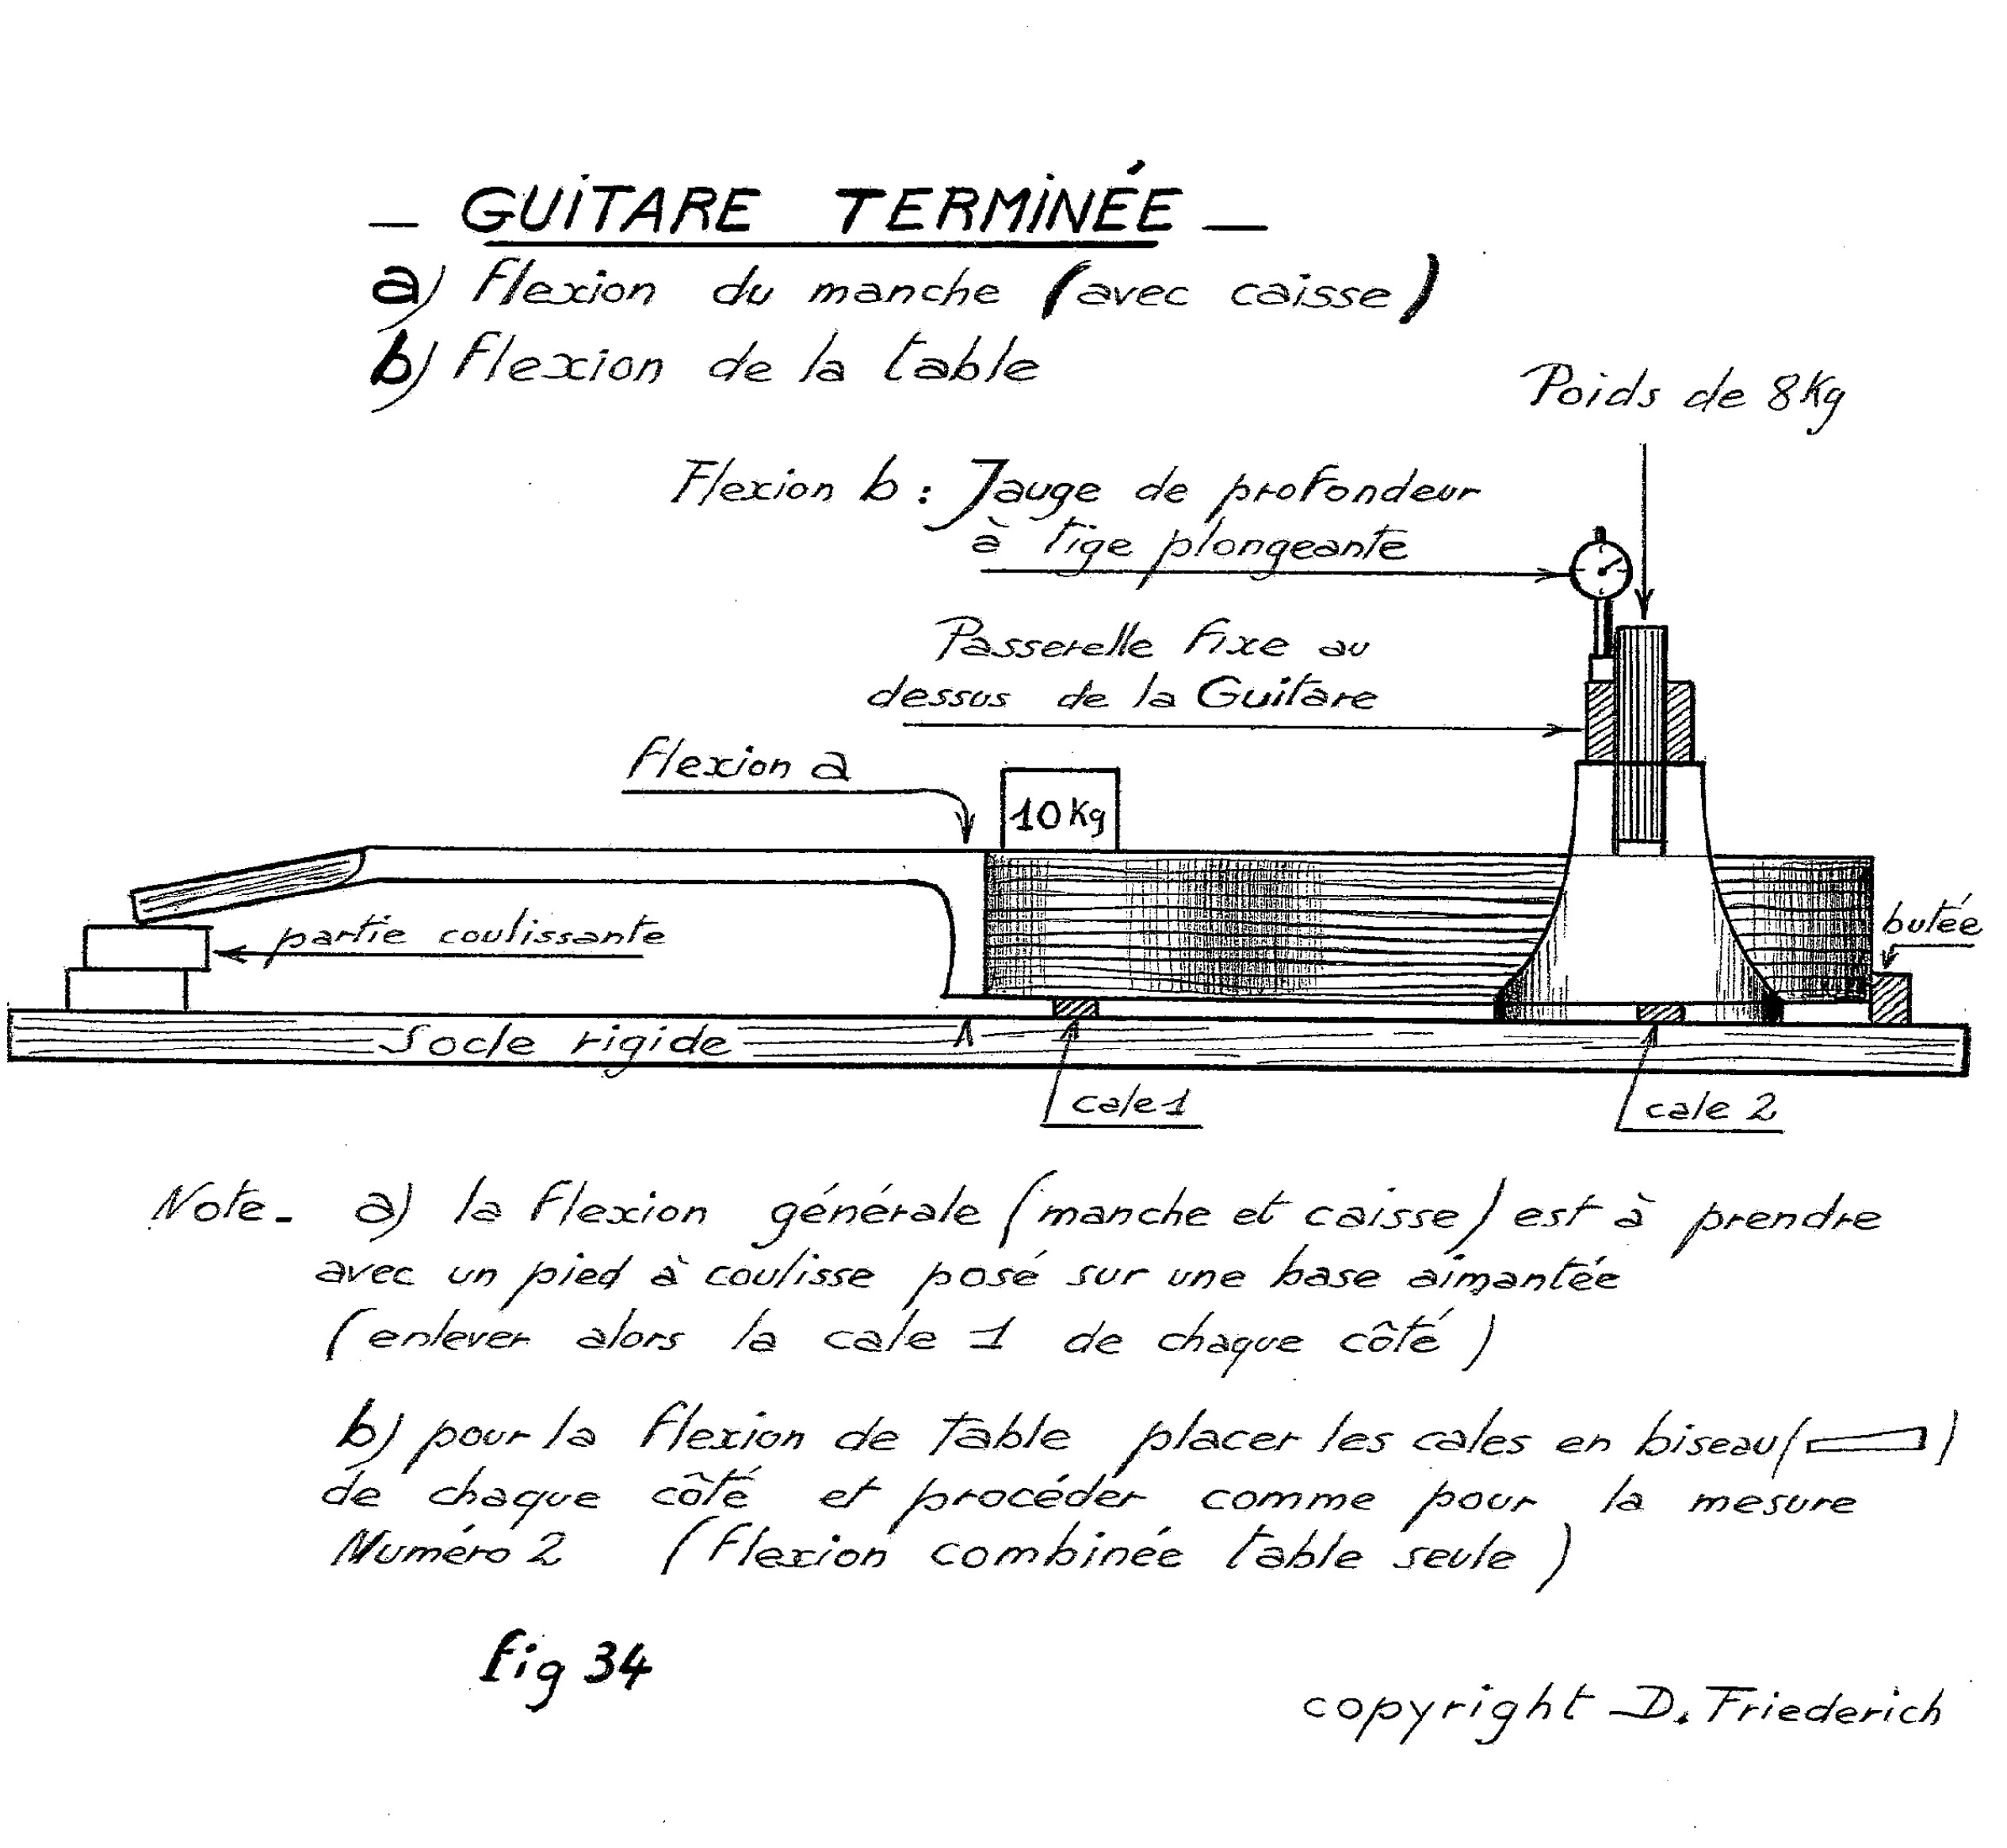 — GUITARE TERMINÉE —
a) Flexion du manche (avec caisse)
b) Flexion de la table
Poids de 8Kg
Flexion b : Jauge de profondeur
à tige plongeante
Passerelle fixe au
dessus de la Guitare
Flexion a
10 Kg
partie coulissante
butée
Socle rigide
cale 1
cale 2
Note - a) la flexion générale (manche et caisse) est à prendre
avec un pied à coulisse posé sur une base aimantée
(enlever alors la cale 1 de chaque côté)
b) pour la flexion de table placer les cales en biseau ( )
de chaque côté et procéder comme pour la mesure
Numéro 2 (flexion combinée table seule)
fig 34
copyright D. Friederich